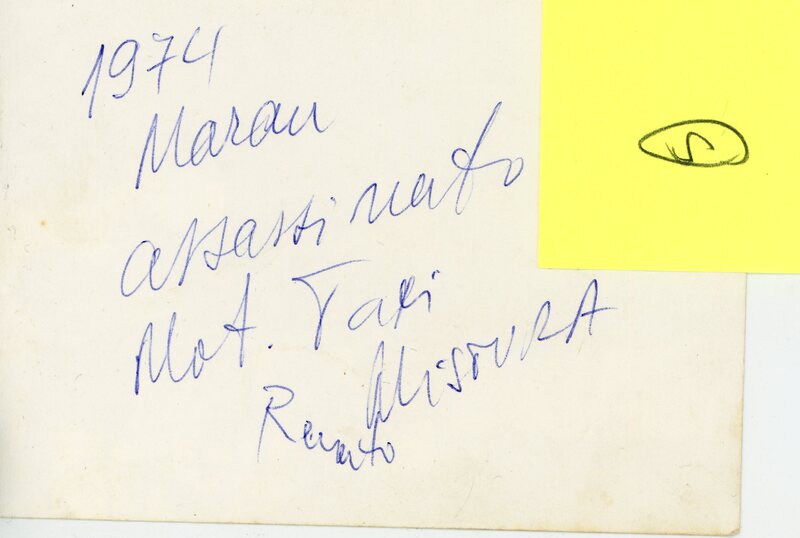 1974
Marau
assassinato
Mot. Taxi
Renato MISTURA
5